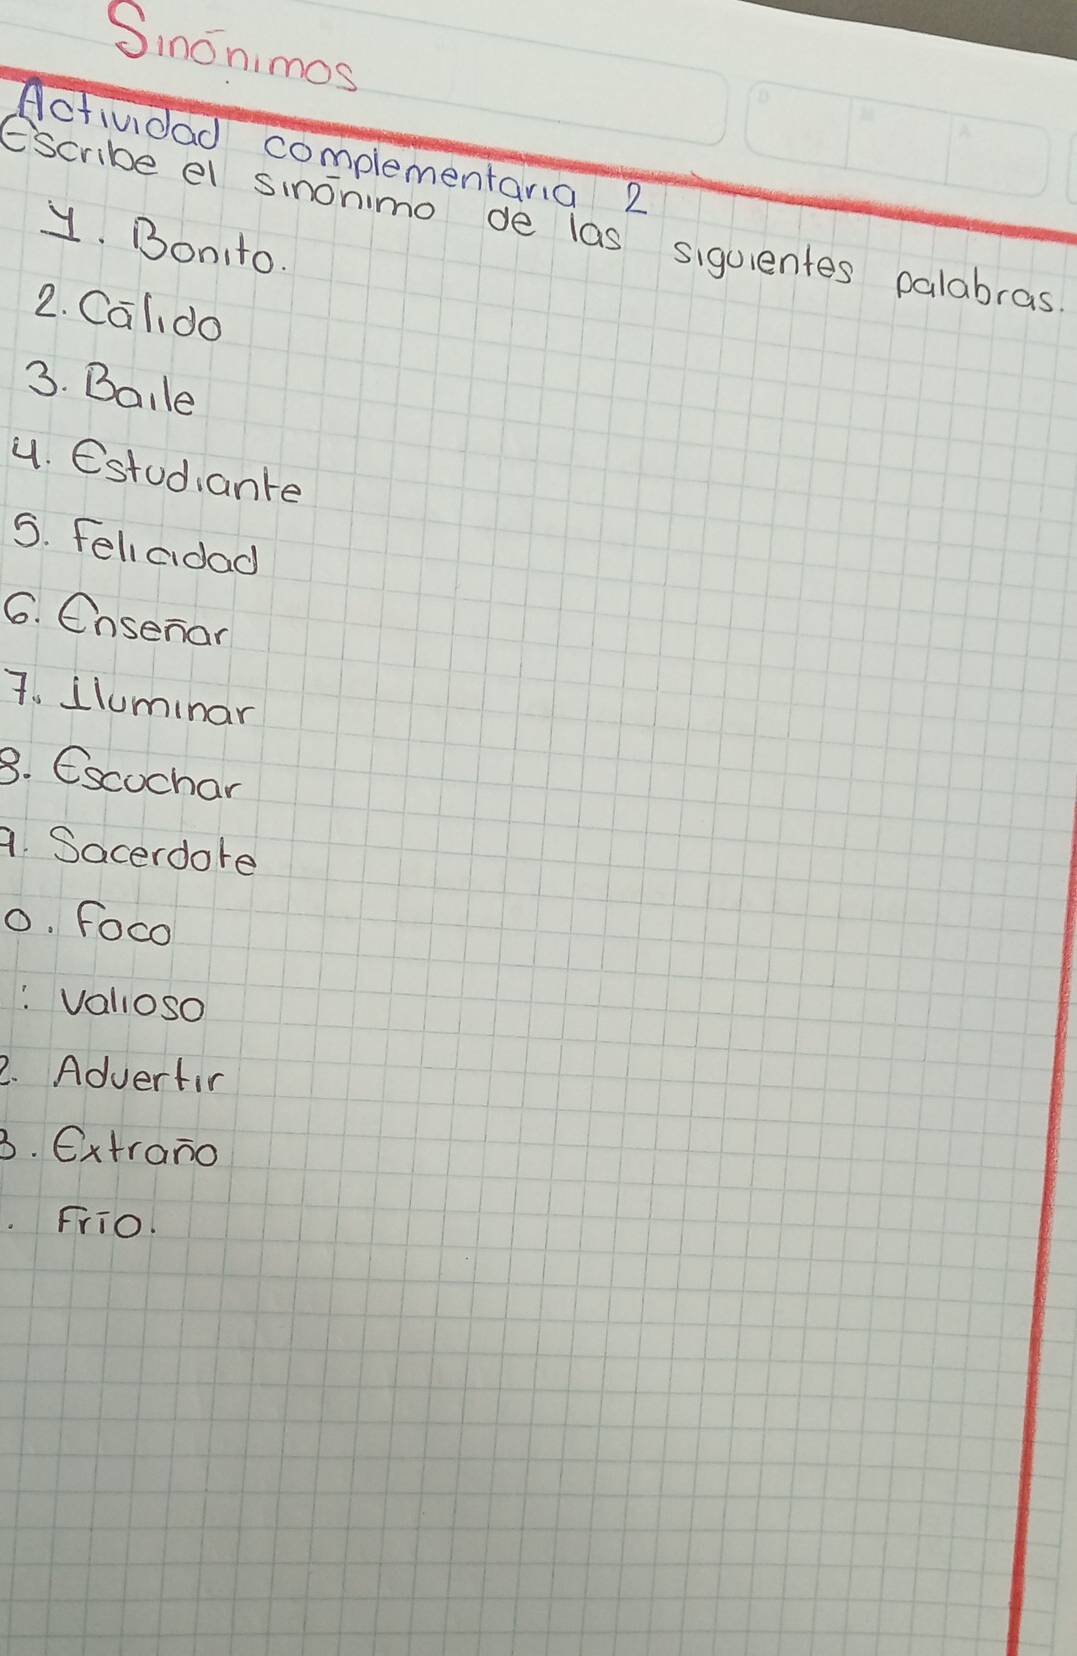 Sinónimos
Actividad complementaria 2
Escribe el sinónimo de las siguientes palabras.
1. Bonito.
2. Cálido
3. Baile
4. Estudiante
5. Felicidad
6. Enseñar
7. Iluminar
8. Escuchar
9. Sacerdote
0. Foco
: Valioso
2. Advertir
3. Extraño
. Frío.